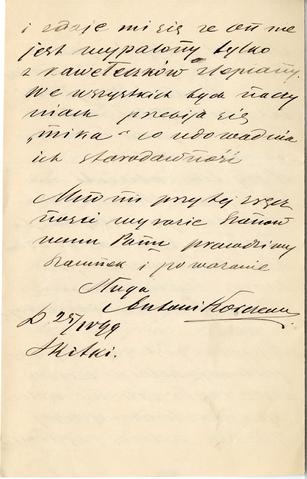 i zdaje mi się ze on nie
jest wypalony tylko
z kawełeczków zlepiany.
We wszystkich tych naczy
niach przebija się
„mika" co udowadnia
ich starodawność
Miło mi przy tej zręcz
ności wyrazic Szanow
nemu Panu prawdziwy
szacunek i powazanie
Sługa
Antoni
D 25/IV 99
Skitki.